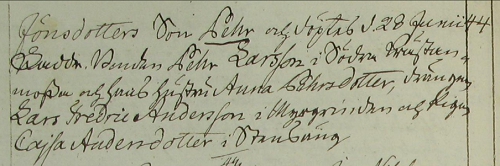 Jönsdotters Son Pehr och döptes d. 28 Junii 44
Bonden Pehr Larsson i Södra
mossa och hans hustru Anna Pehrsdotter, drängen
Lars Fredric Andersson i Myrgrinden och Pigan
Cajsa Andersdotter i Stensäng